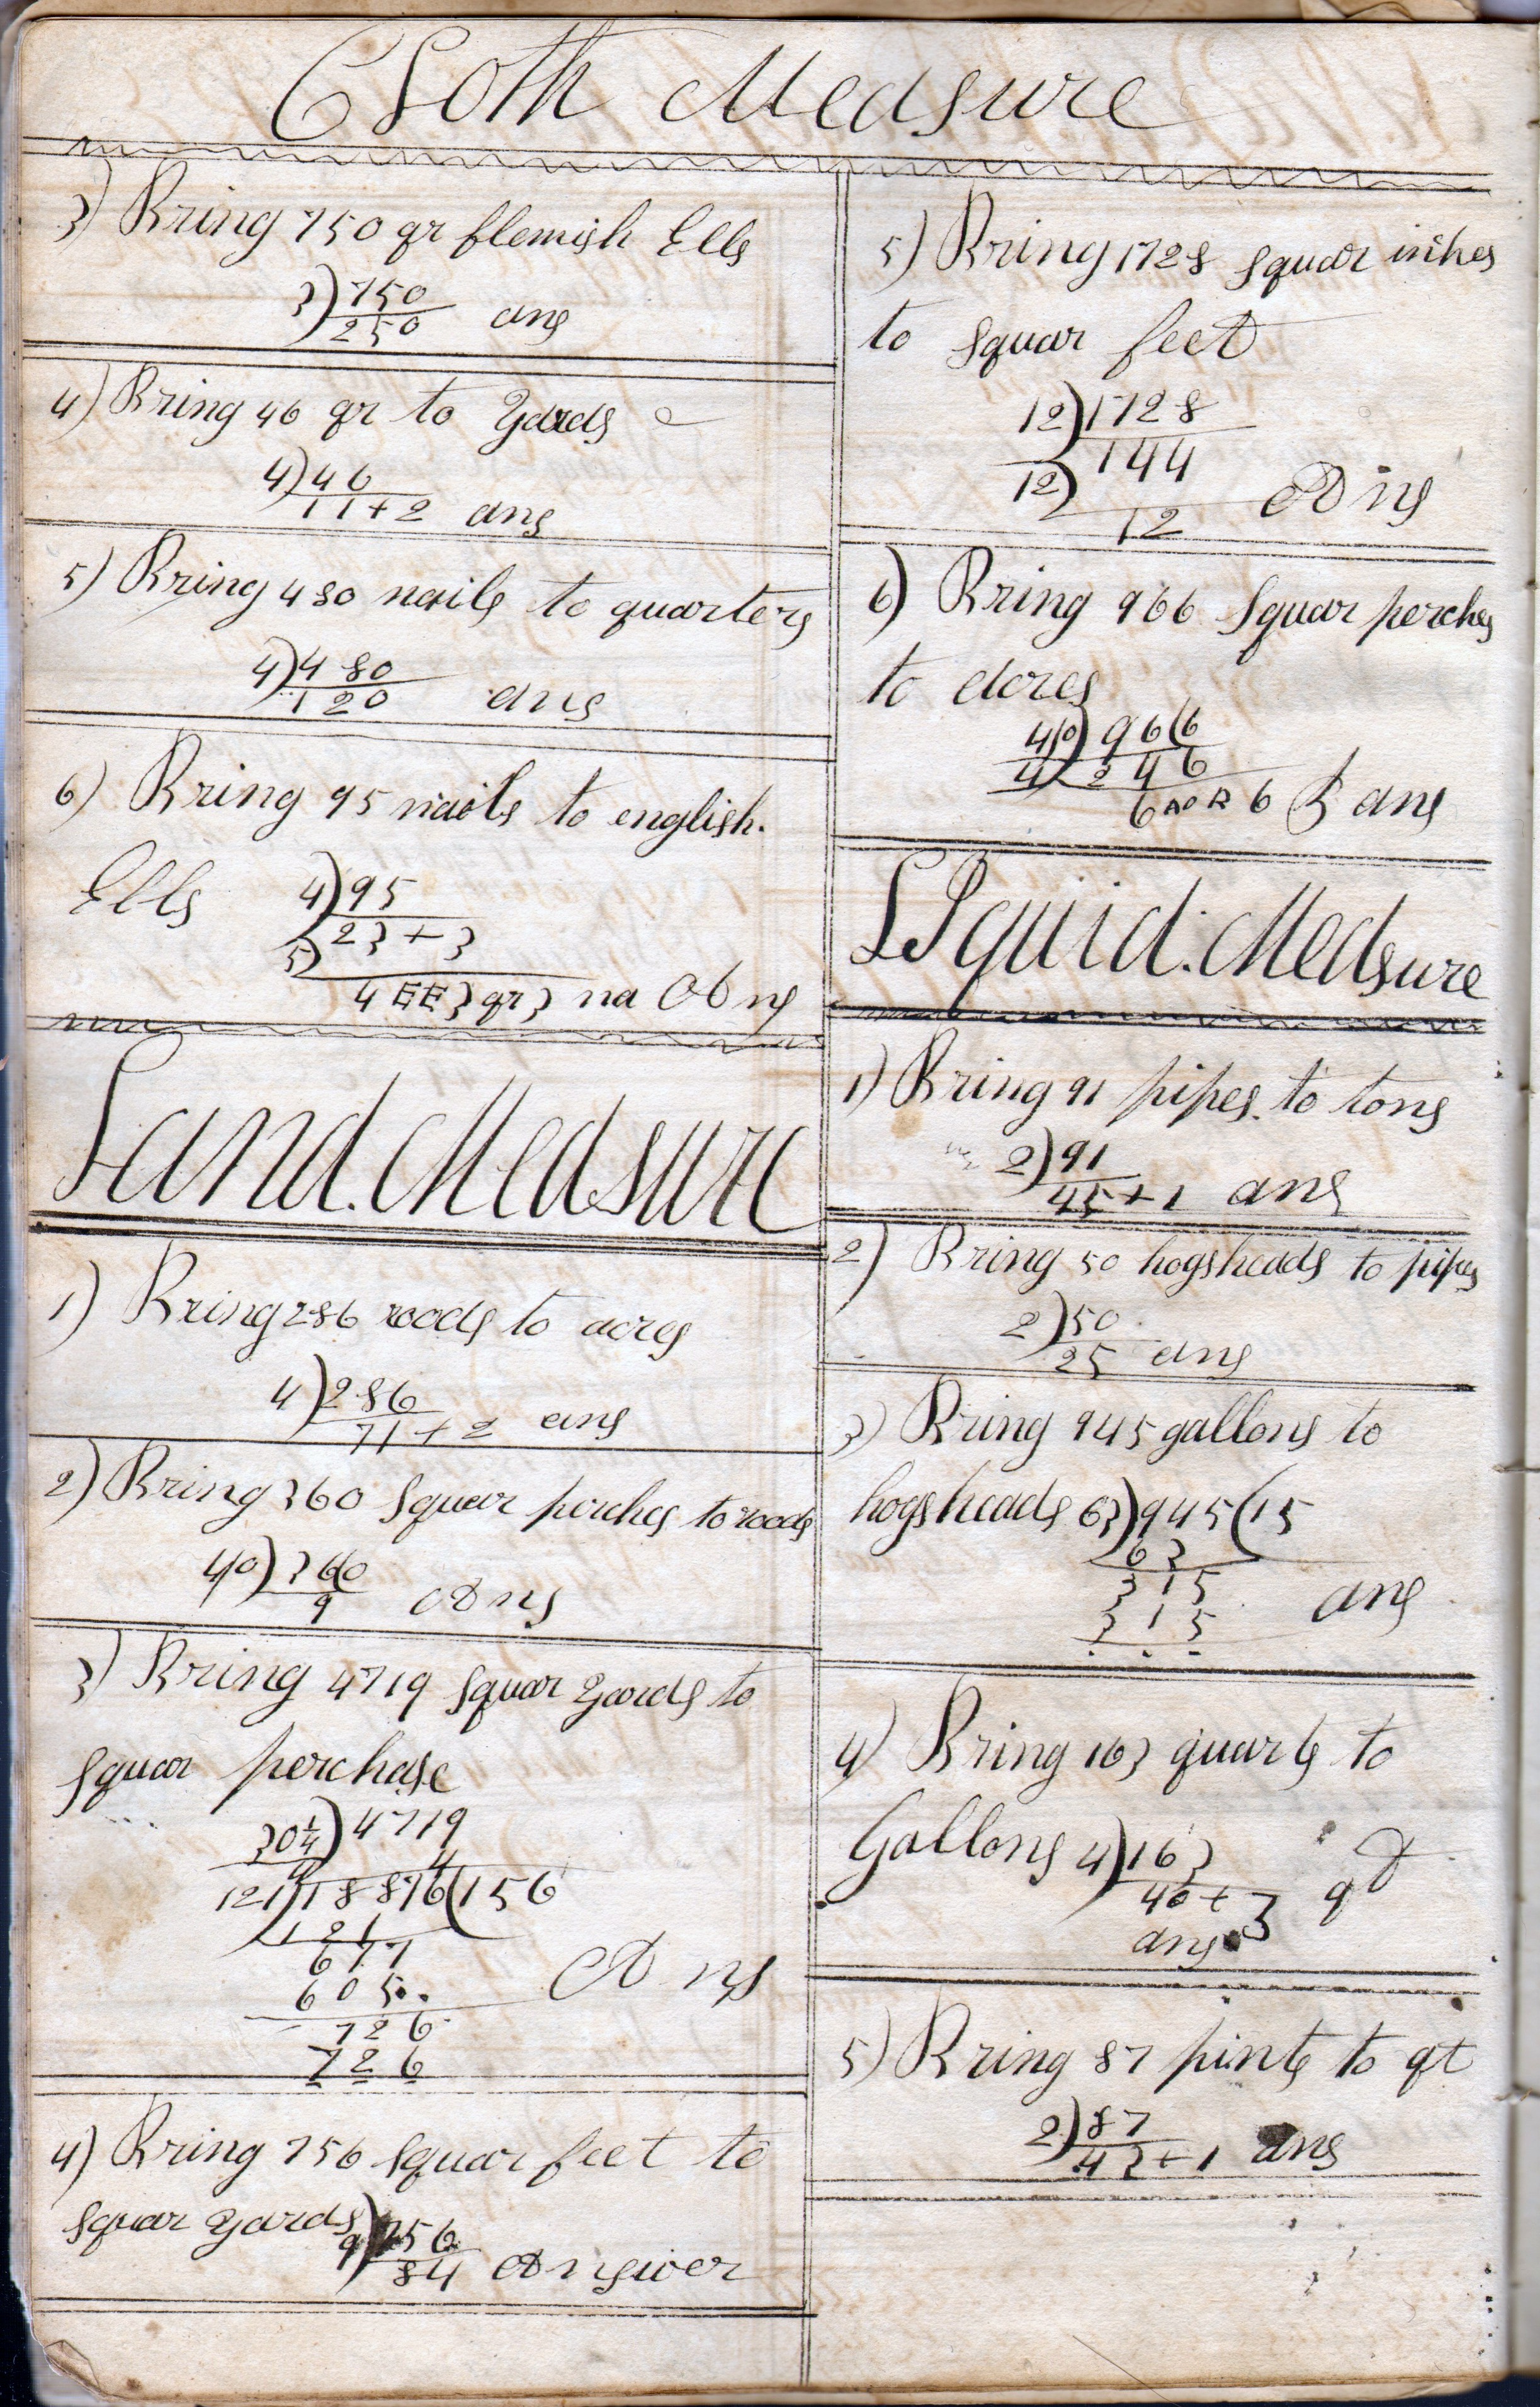 Cloth Measure
3) Bring 750 qr flemish Ells
3)750
250 ans
4) Bring 46 qr to Yards
4)46
11+2 ans
5) Bring 480 nails to quarters
4)480
120 ans
6) Bring 95 nails to english.
Ells 4)95
5)23+3
4 EE 3 qr 3 na Ans
Land. Measure
1) Bring 286 roods to acres
4)286
71+2 ans
2) Bring 360 Squar perches to roods
4|0)36|0
9 Ans
3) Bring 4719 squar yards to
squar perchase
30 1/4)4719
4 4
121)18876(156
121
677
605..
726
726
Ans
4) Bring 756 squar feet to
squar yards 9)756
84 Answer
5) Bring 1728 squar inches
to squar feet
12)1728
12)144
12 Ans
6) Bring 966 Squar perches
to acres
4|0)96|6
4 24 6
6 A 0 R 6 P ans
LIquid. Measure
1) Bring 91 pipes. to tons
2)91
45+1 ans
2) Bring 50 hogsheads to pipes
2)50
25 ans
3) Bring 945 gallons to
hogsheads 63)945(15
63
315
315 ans
4) Bring 163 quarts to
Gallons 4)163
40+3 q
ans
5) Bring 87 pints to qt
2)87
43+1 ans